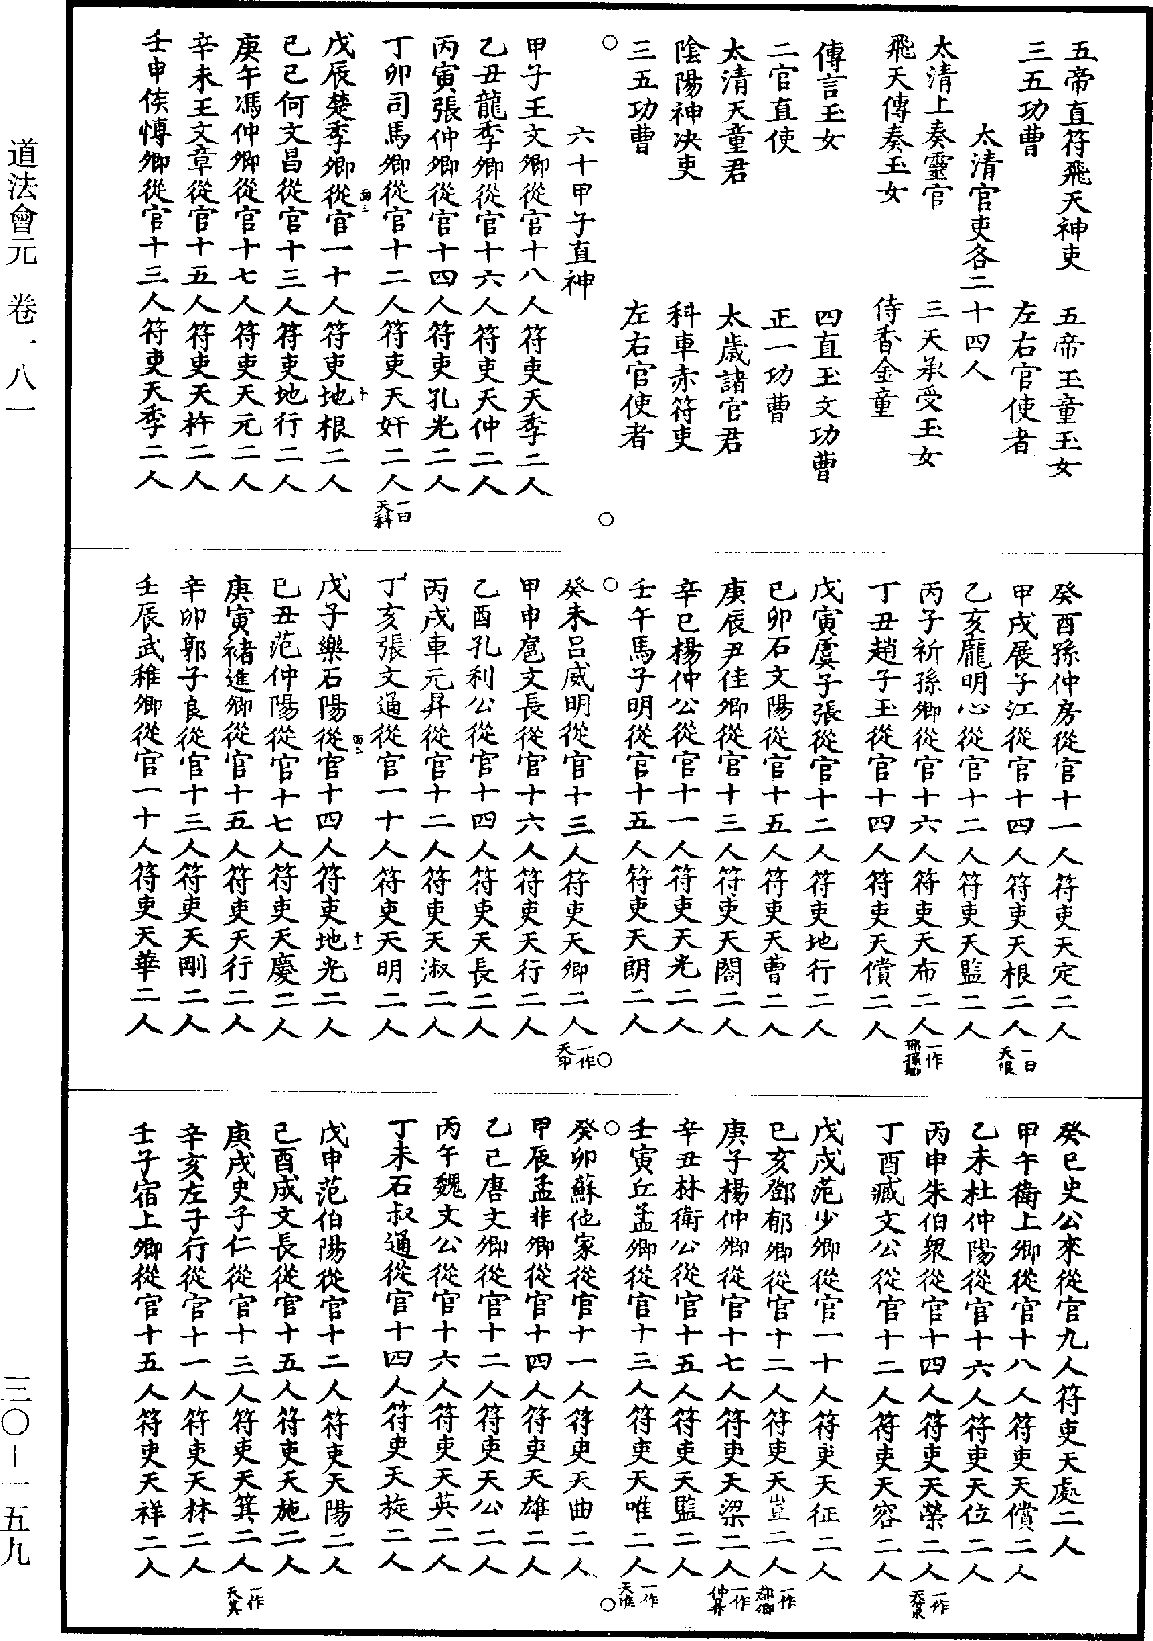 五帝直符飛天神吏　五帝玉童玉女
三五功曹　左右官使者
太清官吏各二十四人
太清上奏靈官　三天承受玉女
飛天傳奏玉女　侍香金童
傳言玉女　四直玉文功曹
二官直使　正一功曹
太清天童君　太歲諸官君
陰陽神決吏　科車赤符吏
三五功曹　左右官使者
六十甲子直神
甲子王文卿從官十八人符吏天季二人
乙丑龍季卿從官十六人符吏天仲二人
丙寅張仲卿從官十四人符吏孔光二人
丁卯司馬卿從官十二人符吏天奸二人一曰天科
戊辰楚季卿從官一十人符吏地根二人
己巳何文昌從官十三人符吏地行二人
庚午馮仲卿從官十七人符吏天元二人
辛未王文章從官十五人符吏天杵二人
壬申侯博卿從官十三人符吏天季二人
癸酉孫仲房從官十一人符吏天定二人
甲戌展子江從官十四人符吏天根二人一曰天恨
乙亥龐明心從官十二人符吏天監二人
丙子祈孫卿從官十六人符吏天布二人一作邢孫卿
丁丑趙子玉從官十四人符吏天償二人
戊寅虞子張從官十二人符吏地行二人
己卯石文陽從官十五人符吏天曹二人
庚辰尹佳卿從官十三人符吏天閣二人
辛巳楊仲公從官十一人符吏天光二人
壬午馬子明從官十五人符吏天朗二人
癸未呂威明從官十三人符吏天卿二人一作天印
甲申扈文長從官十六人符吏天行二人
乙酉孔利公從官十四人符吏天長二人
丙戌車元昇從官十二人符吏天淑二人
丁亥張文通從官一十人符吏天明二人
戊子樂石陽從官十四人符吏地光二人
己丑范仲陽從官十七人符吏天慶二人
庚寅褚進卿從官十五人符吏天行二人
辛卯郭子良從官十三人符吏天剛二人
壬辰武稚卿從官一十人符吏天華二人
癸巳史公來從官九人符吏天處二人
甲午衛上卿從官十八人符吏天償二人
乙未杜仲陽從官十六人符吏天位二人
丙申朱伯眾從官十四人符吏天榮二人一作天泉
丁酉臧文公從官十二人符吏天容二人
戊戌范少卿從官一十人符吏天征二人
己亥鄧郁卿從官十二人符吏天豈二人一作都卿
庚子楊仲卿從官十七人符吏天梁二人一作仲昇
辛丑林衛公從官十五人符吏天監二人
壬寅丘孟卿從官十三人符吏天唯二人一作天惟
癸卯蘇他家從官十一人符吏天曲二人
甲辰孟非卿從官十四人符吏天雄二人
乙巳唐文卿從官十二人符吏天公二人
丙午魏文公從官十六人符吏天英二人
丁未石叔通從官十四人符吏天旋二人
戊申范伯陽從官十二人符吏天陽二人
己酉成文長從官十五人符吏天施二人
庚戌史子仁從官十三人符吏天箕二人一作天其
辛亥左子行從官十一人符吏天林二人
壬子宿上卿從官十五人符吏天祥二人
道法會元　卷一八一
三〇－一五九